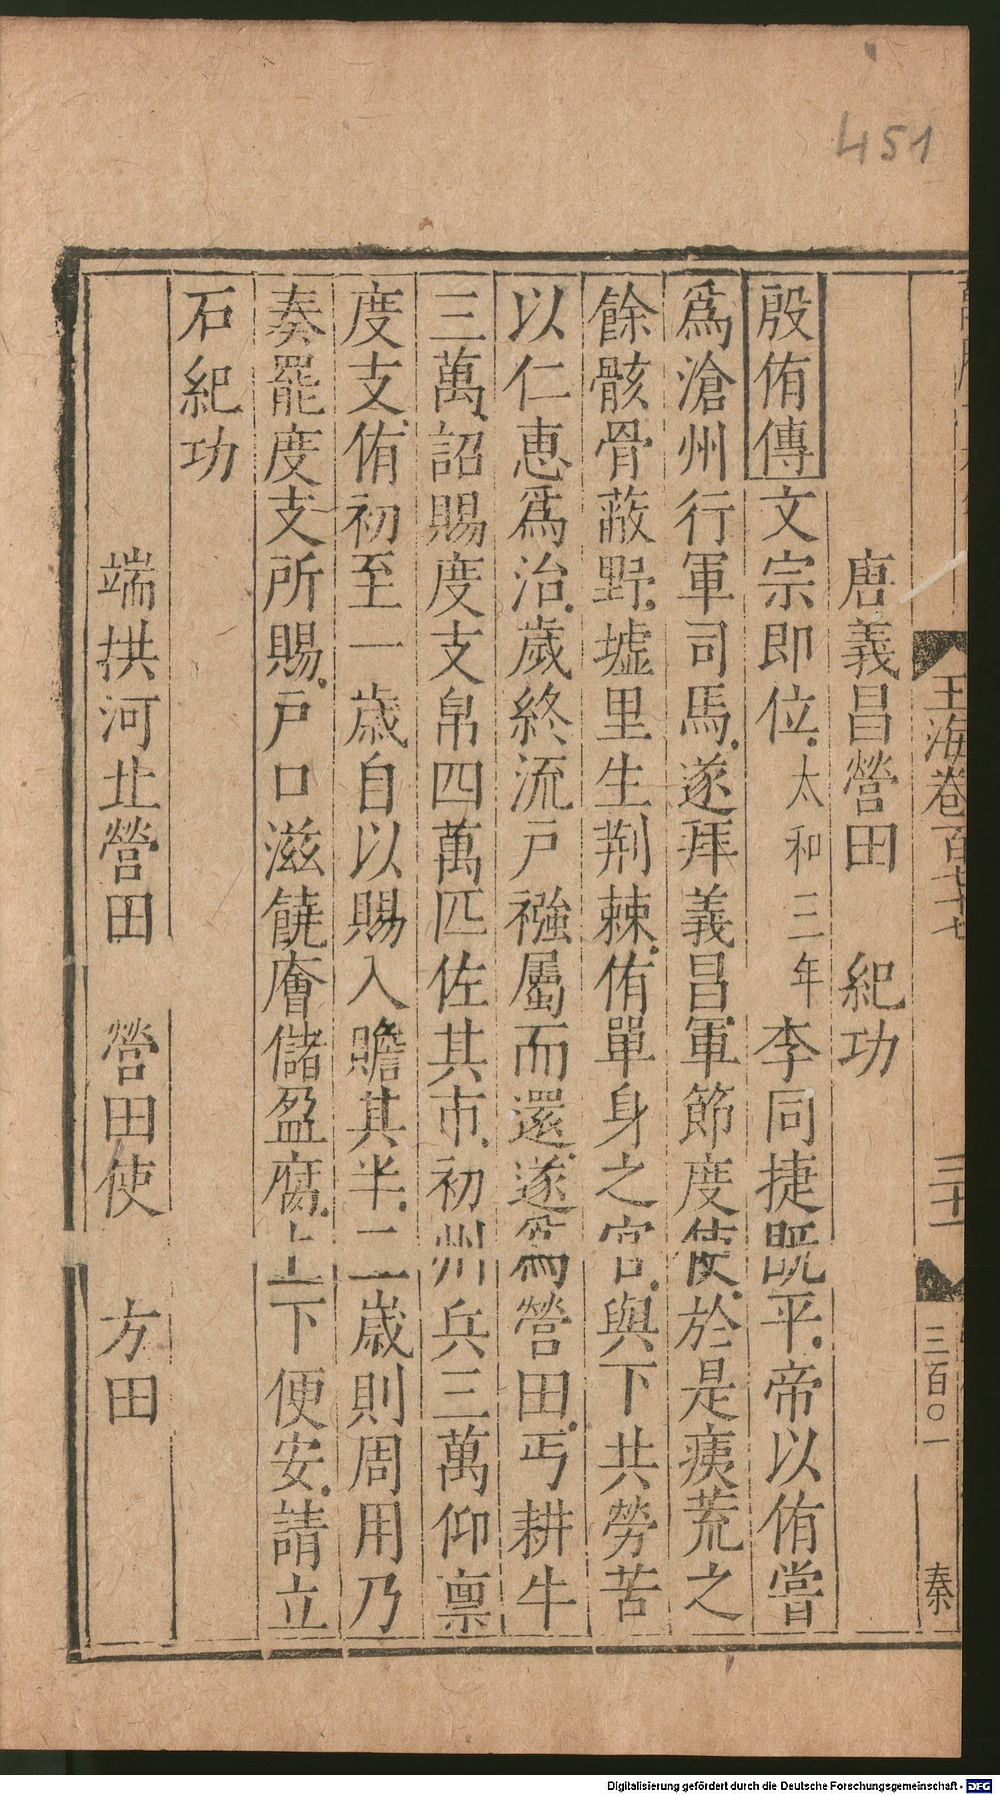 451
玉海卷百七十七
三十一
三百〇一
秦
唐義昌營田 紀功
殷侑傳文宗即位太和三年李同捷既平帝以侑嘗
爲滄州行軍司馬遂拜義昌軍節度使於是痍荒之
餘骸骨蔽野墟里生荆棘侑單身之官與下共勞苦
以仁惠爲治歲終流戶襁屬而還遂爲營田丐耕牛
三萬詔賜度支帛四萬匹佐其市初州兵三萬仰稟
度支侑初至一歲自以賜入贍其半二歲則周用乃
奏罷度支所賜戶口滋饒廥儲盈腐上下便安請立
石紀功
端拱河北營田 營田使 方田
Digitalisierung gefördert durch die Deutsche Forschungsgemeinschaft - DFG